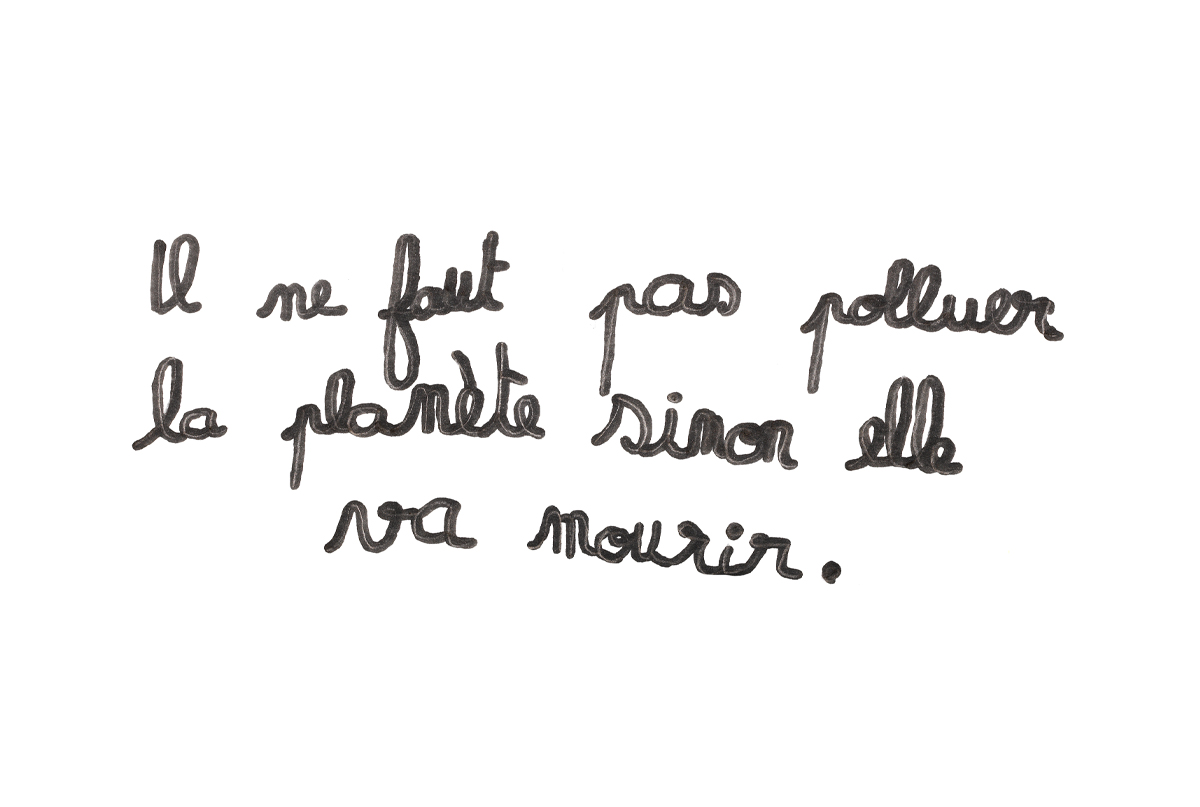 Il ne faut pas polluer
la planète sinon elle
va mourir.